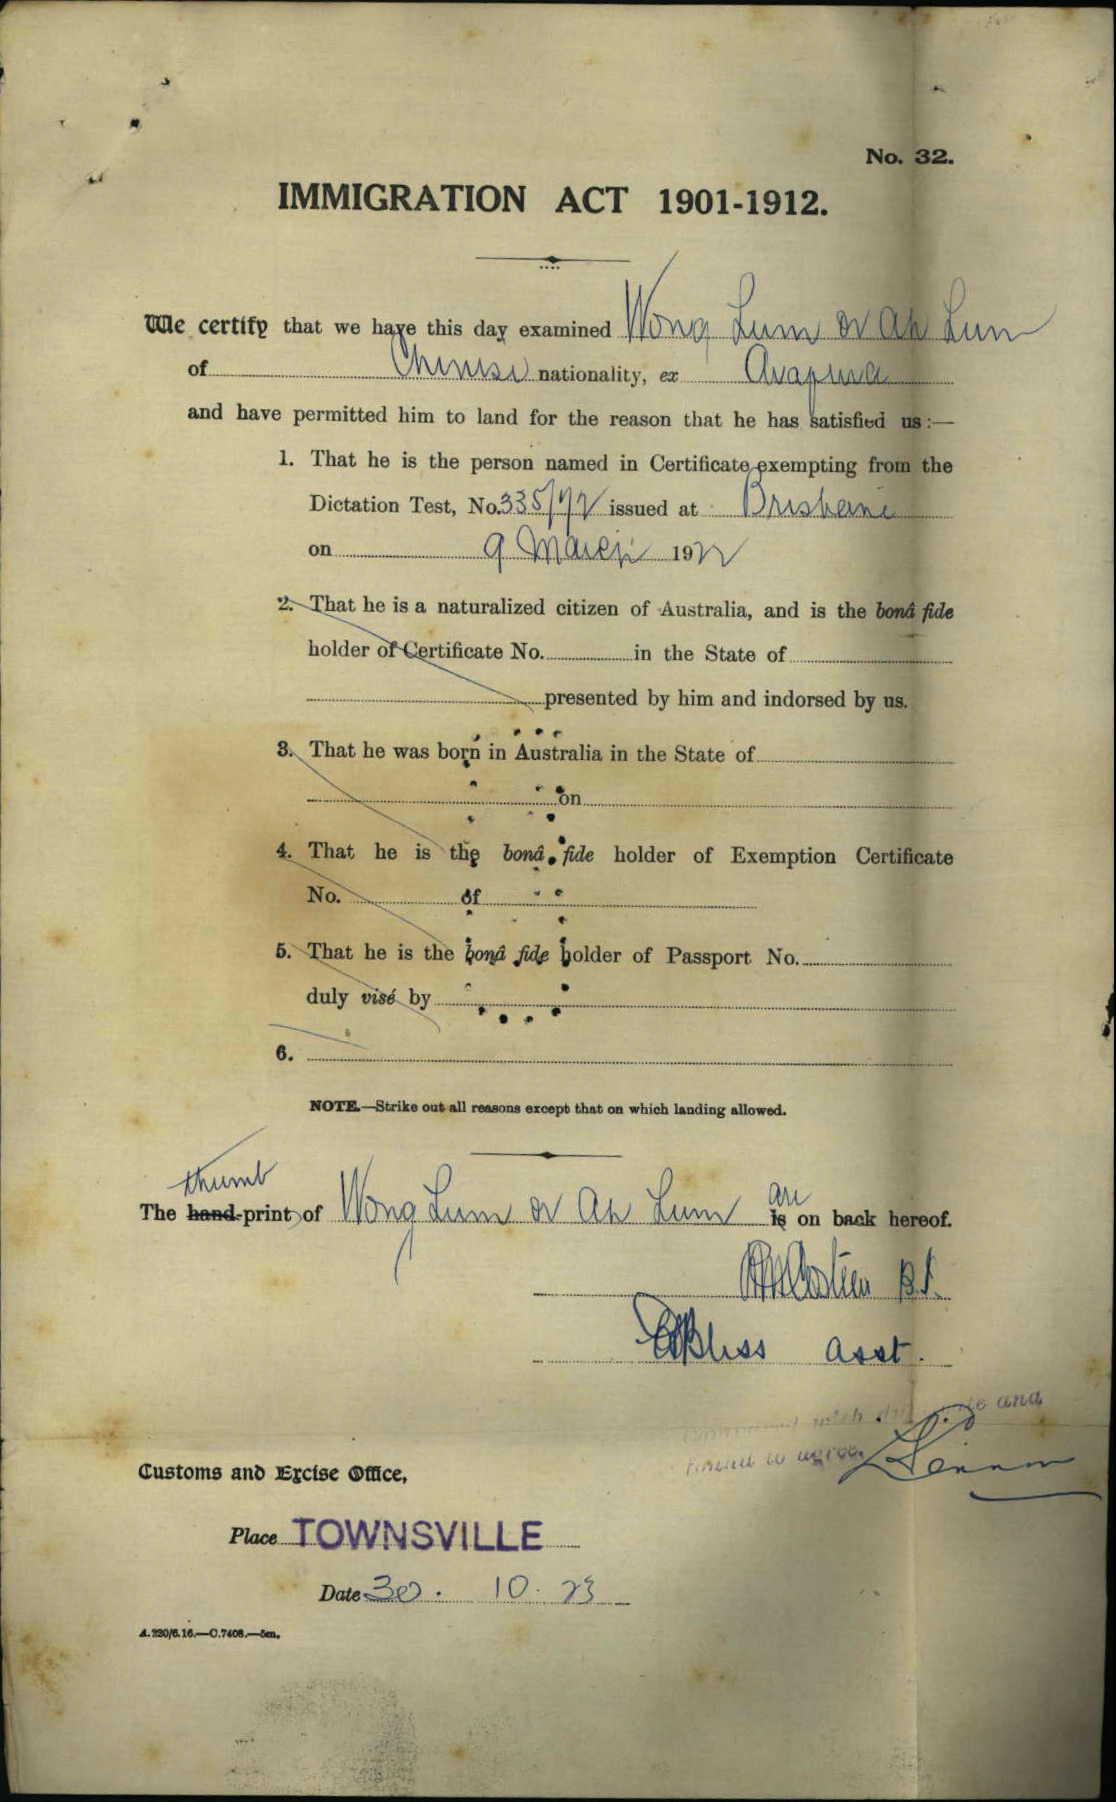 No. 32.
IMMIGRATION ACT 1901-1912.
We certify that we have this day examined Wong Lum or Ah Lum
of Chinese nationality, ex Arafura
and have permitted him to land for the reason that he has satisfied us:—
1. That he is the person named in Certificate exempting from the
Dictation Test, No. 335/42 issued at Brisbane
on 9 March 1922
2. That he is a naturalized citizen of Australia, and is the bonâ fide
holder of Certificate No. in the State of
presented by him and indorsed by us.
3. That he was born in Australia in the State of
on
4. That he is the bonâ fide holder of Exemption Certificate
No. of
5. That he is the bonâ fide holder of Passport No.
duly visé by
6.
NOTE.—Strike out all reasons except that on which landing allowed.
thumb
The hand-print of Wong Lum or Ah Lum is are on back hereof.
B.I.
Bliss Asst.
with and
found to agree.
Customs and Excise Office,
Place TOWNSVILLE
Date 30. 10. 23
A.220/6.16.—C.7408.—5m.